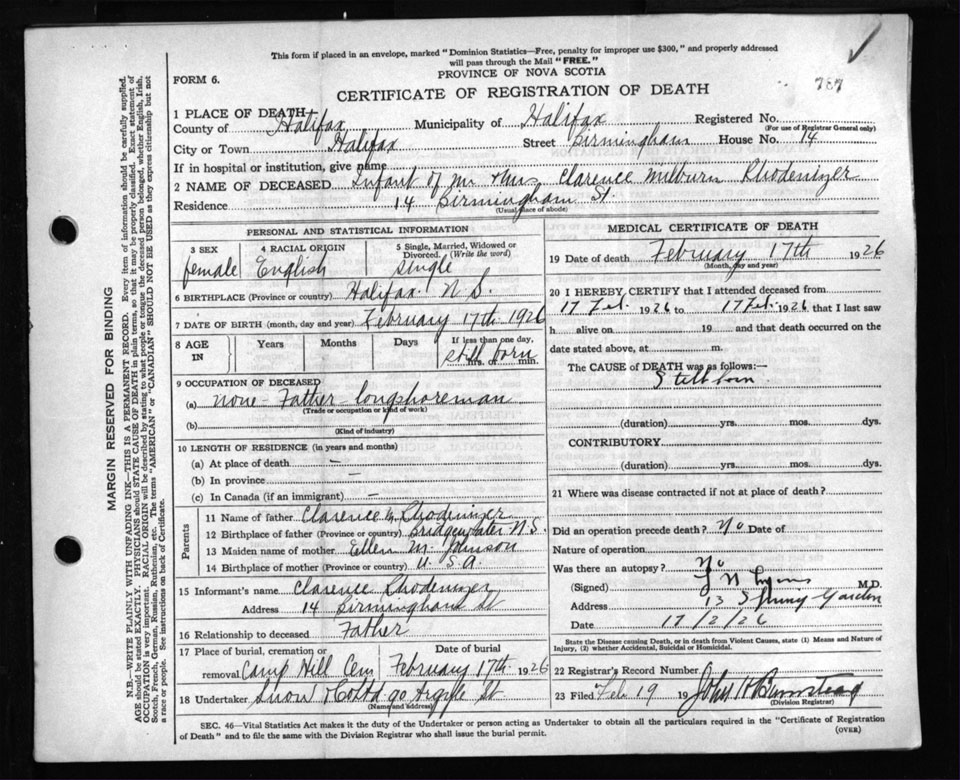 This form if placed in an envelope, marked "Dominion Statistics—Free, penalty for improper use $300," and properly addressed
will pass through the Mail "FREE."
PROVINCE OF NOVA SCOTIA
FORM 6.
787
CERTIFICATE OF REGISTRATION OF DEATH
1 PLACE OF DEATH
County of Halifax Municipality of Halifax Registered No.
(For use of Registrar General only)
City or Town Halifax Street Birmingham House No. 14
If in hospital or institution, give name
2 NAME OF DECEASED Infant of Mr & Mrs Clarence Milburn Rhodenizer
Residence 14 Birmingham St.
(Usual place of abode)
PERSONAL AND STATISTICAL INFORMATION
3 SEX 4 RACIAL ORIGIN 5 Single, Married, Widowed or Divorced. (Write the word)
female English single
6 BIRTHPLACE (Province or country) Halifax N.S.
7 DATE OF BIRTH (month, day and year) February 17th 1926
8 AGE IN Years Months Days If less than one day,
still born hrs. or min.
9 OCCUPATION OF DECEASED
(a) none - Father - longshoreman
(Trade or occupation or kind of work)
(b)
(Kind of industry)
10 LENGTH OF RESIDENCE (in years and months)
(a) At place of death —
(b) In province —
(c) In Canada (if an immigrant) —
Parents
11 Name of father Clarence M. Rhodenizer
12 Birthplace of father (Province or country) Bridgewater N.S.
13 Maiden name of mother Ellen M. Johnson
14 Birthplace of mother (Province or country) U.S.A.
15 Informant's name Clarence Rhodenizer
Address 14 Birmingham St
16 Relationship to deceased Father
17 Place of burial, cremation or removal Camp Hill Cem Date of burial February 17th 1926
18 Undertaker Snow & Co Ltd 90 Argyle St
(Name and address)
MEDICAL CERTIFICATE OF DEATH
19 Date of death February 17th 1926
(Month, day and year)
20 I HEREBY CERTIFY that I attended deceased from
17 Feb. 1926 to 17 Feb. 1926 that I last saw
h alive on 19 and that death occurred on the
date stated above, at m.
The CAUSE of DEATH was as follows:—
Stillborn
(duration) yrs. mos. dys.
CONTRIBUTORY
(duration) yrs. mos. dys.
21 Where was disease contracted if not at place of death?
Did an operation precede death? No Date of
Nature of operation
Was there an autopsy? No
(Signed) M.D.
Address 13 Spring Garden
Date 17/2/26
State the Disease causing Death, or in death from Violent Causes, state (1) Means and Nature of
Injury, (2) whether Accidental, Suicidal or Homicidal.
22 Registrar's Record Number
23 Filed Feb 19 19 John H Bumstead
(Division Registrar)
SEC. 46—Vital Statistics Act makes it the duty of the Undertaker or person acting as Undertaker to obtain all the particulars required in the "Certificate of Registration
of Death" and to file the same with the Division Registrar who shall issue the burial permit.
(OVER)
MARGIN RESERVED FOR BINDING
N.B.—WRITE PLAINLY WITH UNFADING INK—THIS IS A PERMANENT RECORD. Every item of information should be carefully supplied.
AGE should be stated EXACTLY. PHYSICIANS should STATE CAUSE OF DEATH in plain terms, so that it may be properly classified. Exact statement of
OCCUPATION is very important. RACIAL ORIGIN will be described by stating to what people or tongue the deceased person belonged, whether English, Irish,
Scotch, French, German, Russian, Ruthenian, etc. The terms "AMERICAN" or "CANADIAN" SHOULD NOT BE USED as they express citizenship but not
a race or people. See instructions on back of Certificate.